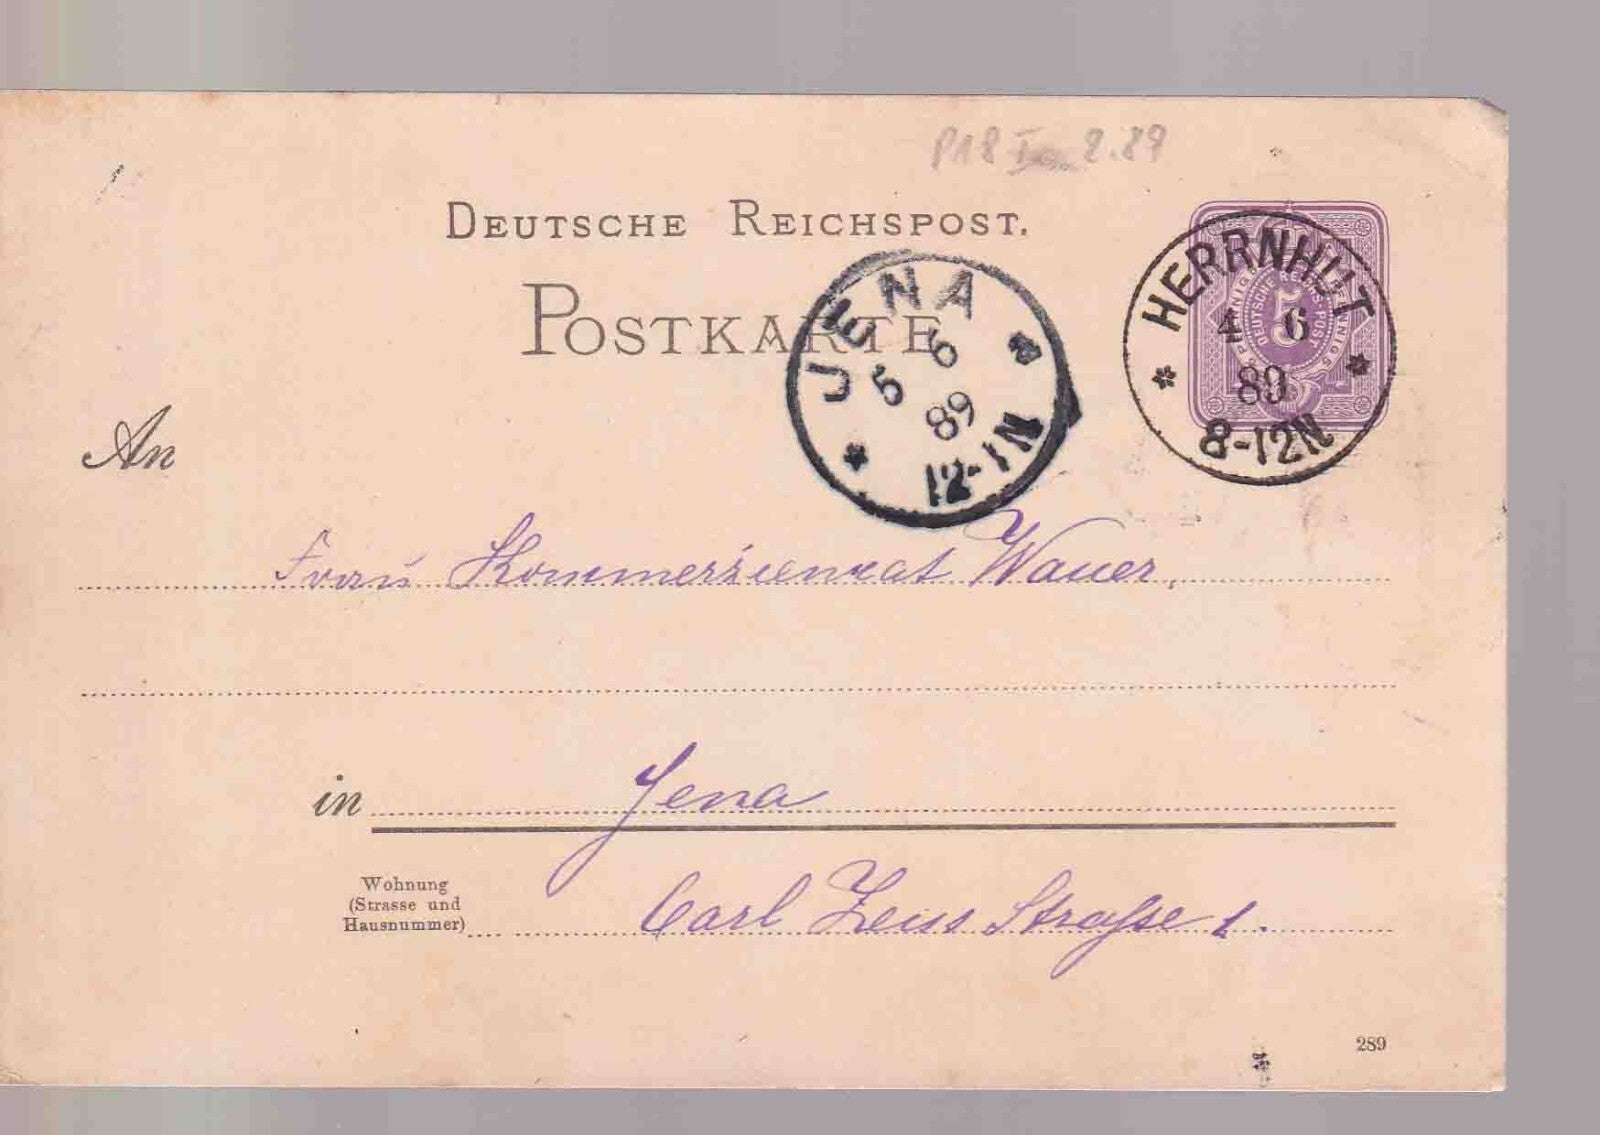 P18 I 2.89
DEUTSCHE REICHSPOST.
POSTKARTE
JENA
5 6
89
12-1N
HERRNHUT
4 6
89
8-12N
5
DEUTSCHE REICHS-POST
An
Frau Kommerzienrat Wauer,
in Jena
Wohnung
(Strasse und
Hausnummer) Carl Zeiss Straße 1.
289